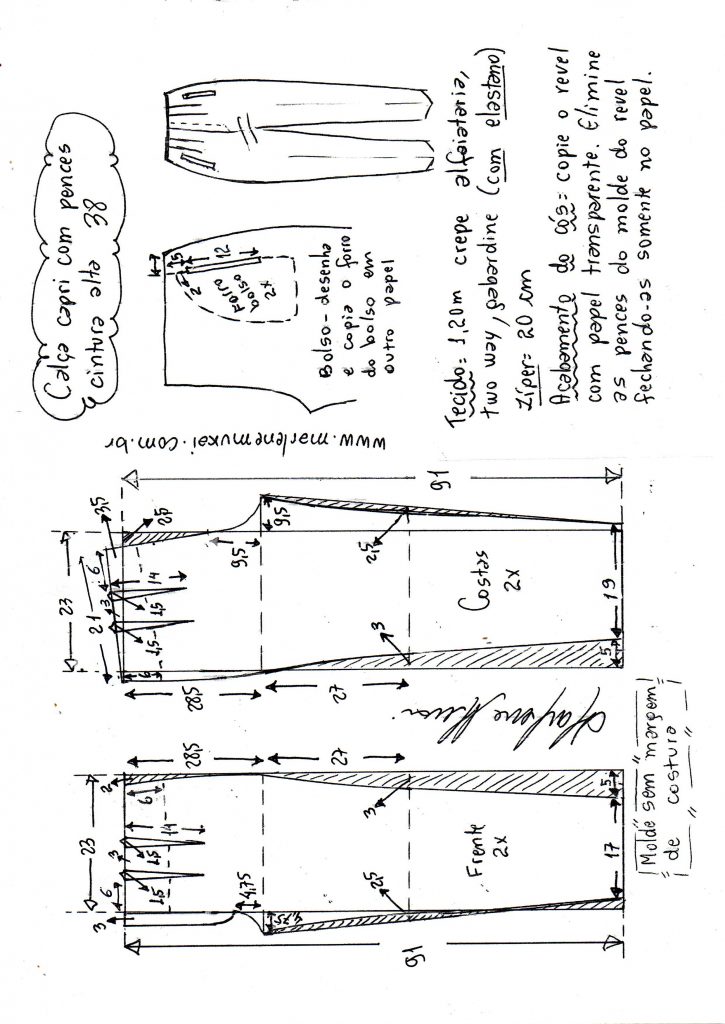 Calça capri com pences
cintura alta 38
1,5
12
2
Forro
bolso
2x
Bolso - desenha
e copia o forro
do bolso em
outro papel
Tecido = 1,20m crepe alfaiataria,
two way, gabardine (com elastano)
Zíper = 20 cm
Acabamento do cós = copie o revel
com papel transparente. Elimine
as pences do molde do revel
fechando-as somente no papel.
www.marlenemukai.com.br
91
23
28,5
27
2
6
14
3
1,5
1,5
6
3
4,75
4,75
3
2,5
Frente
2x
17
5
Molde sem margem
de costura
91
23
21
28,5
27
3,5
2,5
6
14
3
1,5
1,5
6
9,5
9,5
2,5
3
Costas
2x
19
5